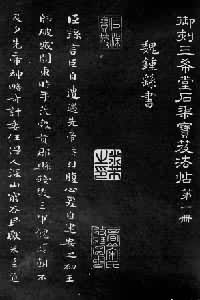 御刻三希堂石渠寶笈法帖 第一冊
魏鍾繇書
石渠寶笈
臣繇言臣自遭遇先帝忝列腹心爰自建安之初王
師破賊關東時年荒穀貴郡縣殘毀三軍餽饟朝不
及夕先帝神略奇計委任得人深山窮谷民獻米豆道